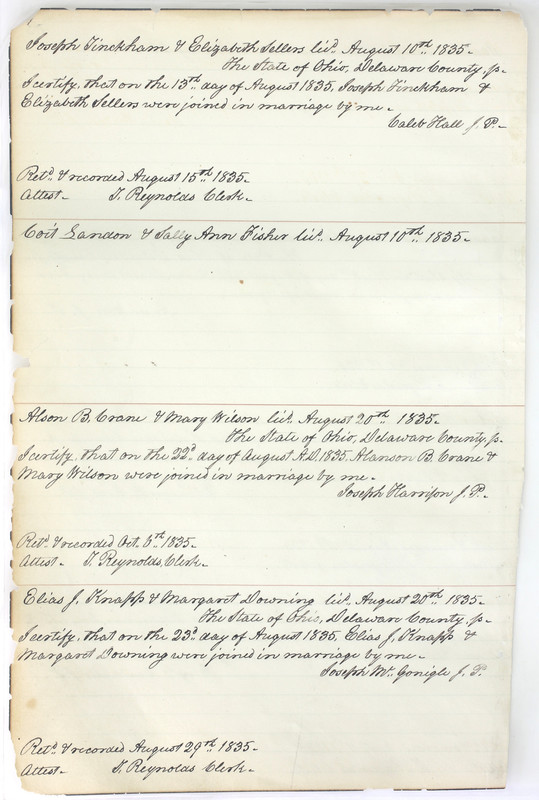 Joseph Tinckham & Elizabeth Sellers licd. August 10th 1835.
The State of Ohio, Delaware County, ss.
I certify, that on the 13th day of August 1835, Joseph Tinckham &
Elizabeth Sellers were joined in marriage by me.
Caleb Hall J. P.
Retd. & recorded August 15th 1835.
Attest. T. Reynolds Clerk.
Coit Landon & Sally Ann Fisher licd. August 10th 1835.
Alson B. Crane & Mary Wilson licd. August 20th 1835.
The State of Ohio, Delaware County, ss.
I certify, that on the 22d. day of August A.D. 1835, Alanson B. Crane &
Mary Wilson were joined in marriage by me.
Joseph Harrison J. P.
Retd. & recorded Oct. 6th 1835.
Attest. T. Reynolds, Clerk.
Elias J. Knapp & Margaret Downing licd. August 20th 1835.
The State of Ohio, Delaware County, ss.
I certify, that on the 23d. day of August 1835, Elias J. Knapp &
Margaret Downing were joined in marriage by me.
Joseph Mc. Gonigle J. P.
Retd. & recorded August 29th 1835.
Attest. T. Reynolds Clerk.